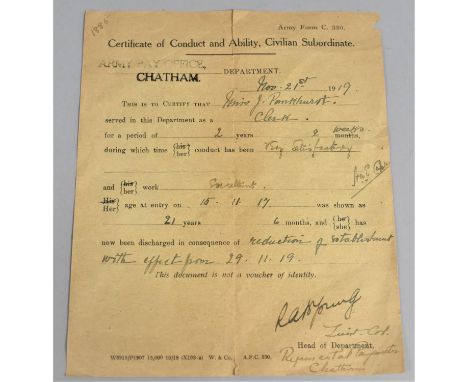 1886
Army Form C. 330.
Certificate of Conduct and Ability, Civilian Subordinate.
ARMY PAY OFFICE,
CHATHAM. DEPARTMENT.
Nov. 21st 1919
THIS IS TO CERTIFY THAT Miss J. Pankhurst.
served in this Department as a Clerk.
for a period of 2 years 2 weeks months,
during which time {his her} conduct has been Very Satisfactory
and {his her} work Excellent.
His Her} age at entry on 15 - 11 - 17 was shown as
21 years 6 months, and {he she} has
now been discharged in consequence of reduction of establishment
with effect from 29 . 11 . 19
This document is not a voucher of identity.
Young
Lieut-Col.
Head of Department,
Regimental Paymaster
Chatham
W8915/P1907 15,000 10/18 (X103-a) W. & Co. A.F.C. 330.